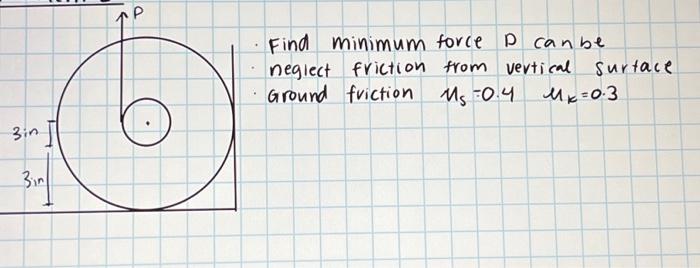 P
· Find minimum force P can be
· neglect friction from vertical surface
· Ground friction μs=0.4 μk=0.3
3in
3in